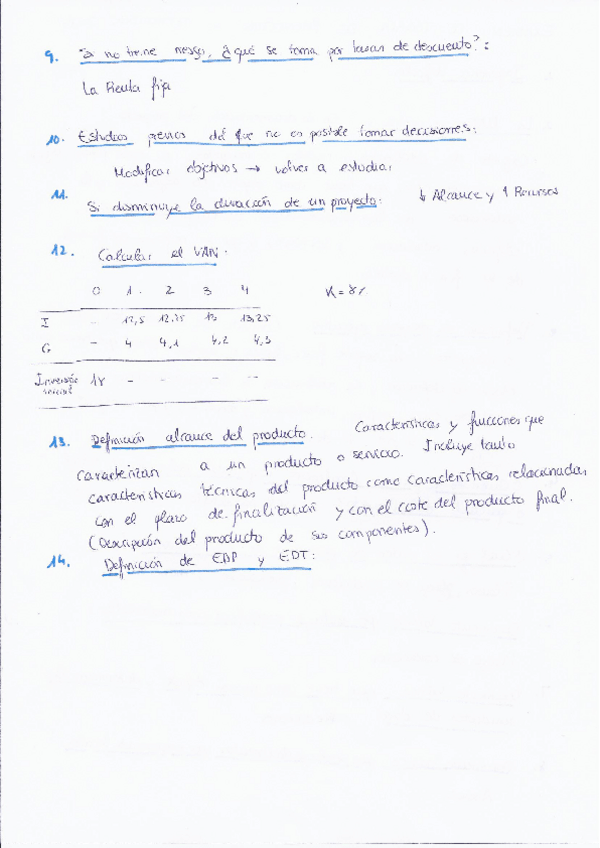 9. Si no tiene riesgo, ¿qué se toma por tasas de descuento?:
La Renta fija
10. Estudios previos dá que no es posible tomar decisiones:
Modificar objetivos → volver a estudiar
11. Si disminuye la duración de un proyecto: ↓ Alcance y ↑ Recursos
12. Calcular el VAN:
0 1 2 3 4 K = 8%
I - 12,5 12,75 13 13,25
G - 4 4,1 4,2 4,3
Inversión 18 - - - -
inicial
13. Definición alcance del producto. Características y funciones que
caracterizan a un producto o servicio. Incluye tanto
características técnicas del producto como características relacionadas
con el plazo de finalización y con el coste del producto final.
(Descripción del producto de sus componentes).
14. Definición de EDP y EDT: